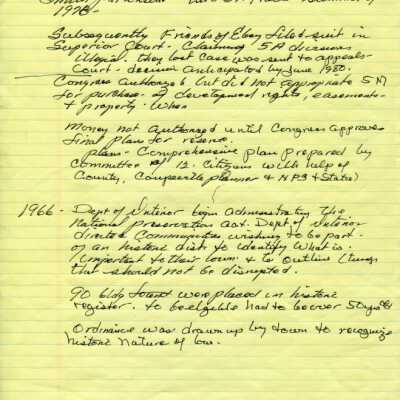 1978-
Subsequently Friends of Ebey filed suit in
Superior Court - Claiming 5A divisions
illegal. they lost case was sent to appeals
Court - decision anticipated by June 1980.
Congress authorized but did not appropriate 5 M
for purchase of development rights, easements
+ property. When
Money not authorized until Congress approves
final plan for reserve.
plan - Comprehensive plan prepared by
Committee of 12 Citizens with help of
County, Coupeville planner & NPS & State)
1966 - Dept of Interior began administrating the
National preservation act. Dept of Interior
directed Communities wishing to be part
of an historic dist. to identify what is
important to their town & to outline things
that should not be disrupted.
90 bldg were placed in historic
register. to be eligible had to be over 50 yrs old
Ordinance was drawn up by town to recognize
historic nature of